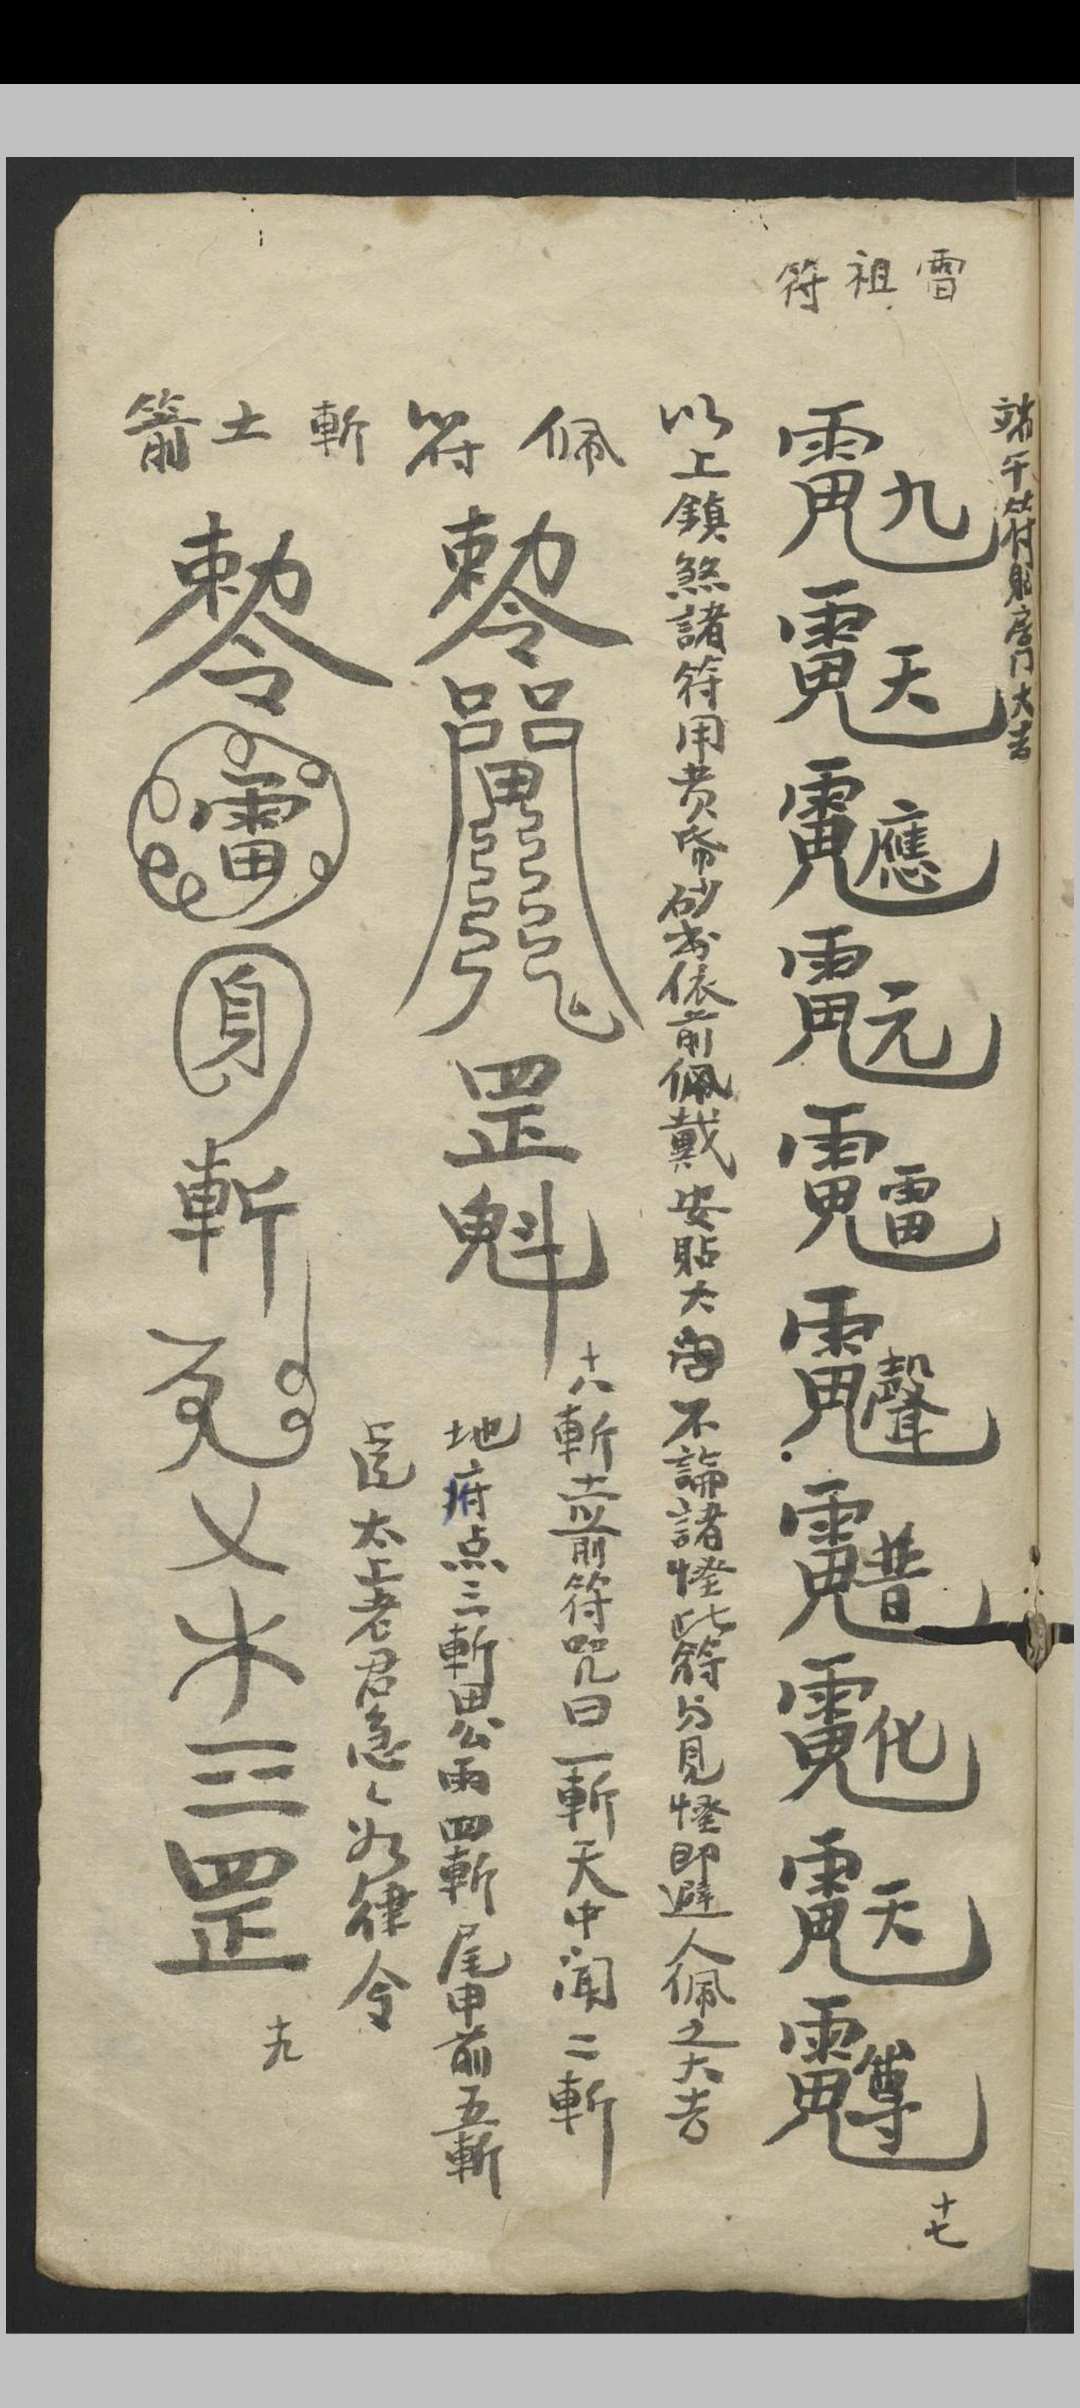 雷祖符
端午符貼房門大吉
九天應元雷聲普化天尊
十七
以上鎮煞諸符用黄帋砂书依前佩戴安貼大門不論諸怪此符㕥見怪即避人佩之大吉
佩符
勅令
罡魁
十八
斬土箭符咒曰一斬天中闻二斬
地府点三斬思公雨四斬尾申前五斬
太上老君急〻如律令
斬土箭
勅令
雷
身
斬
乂
罡
十九